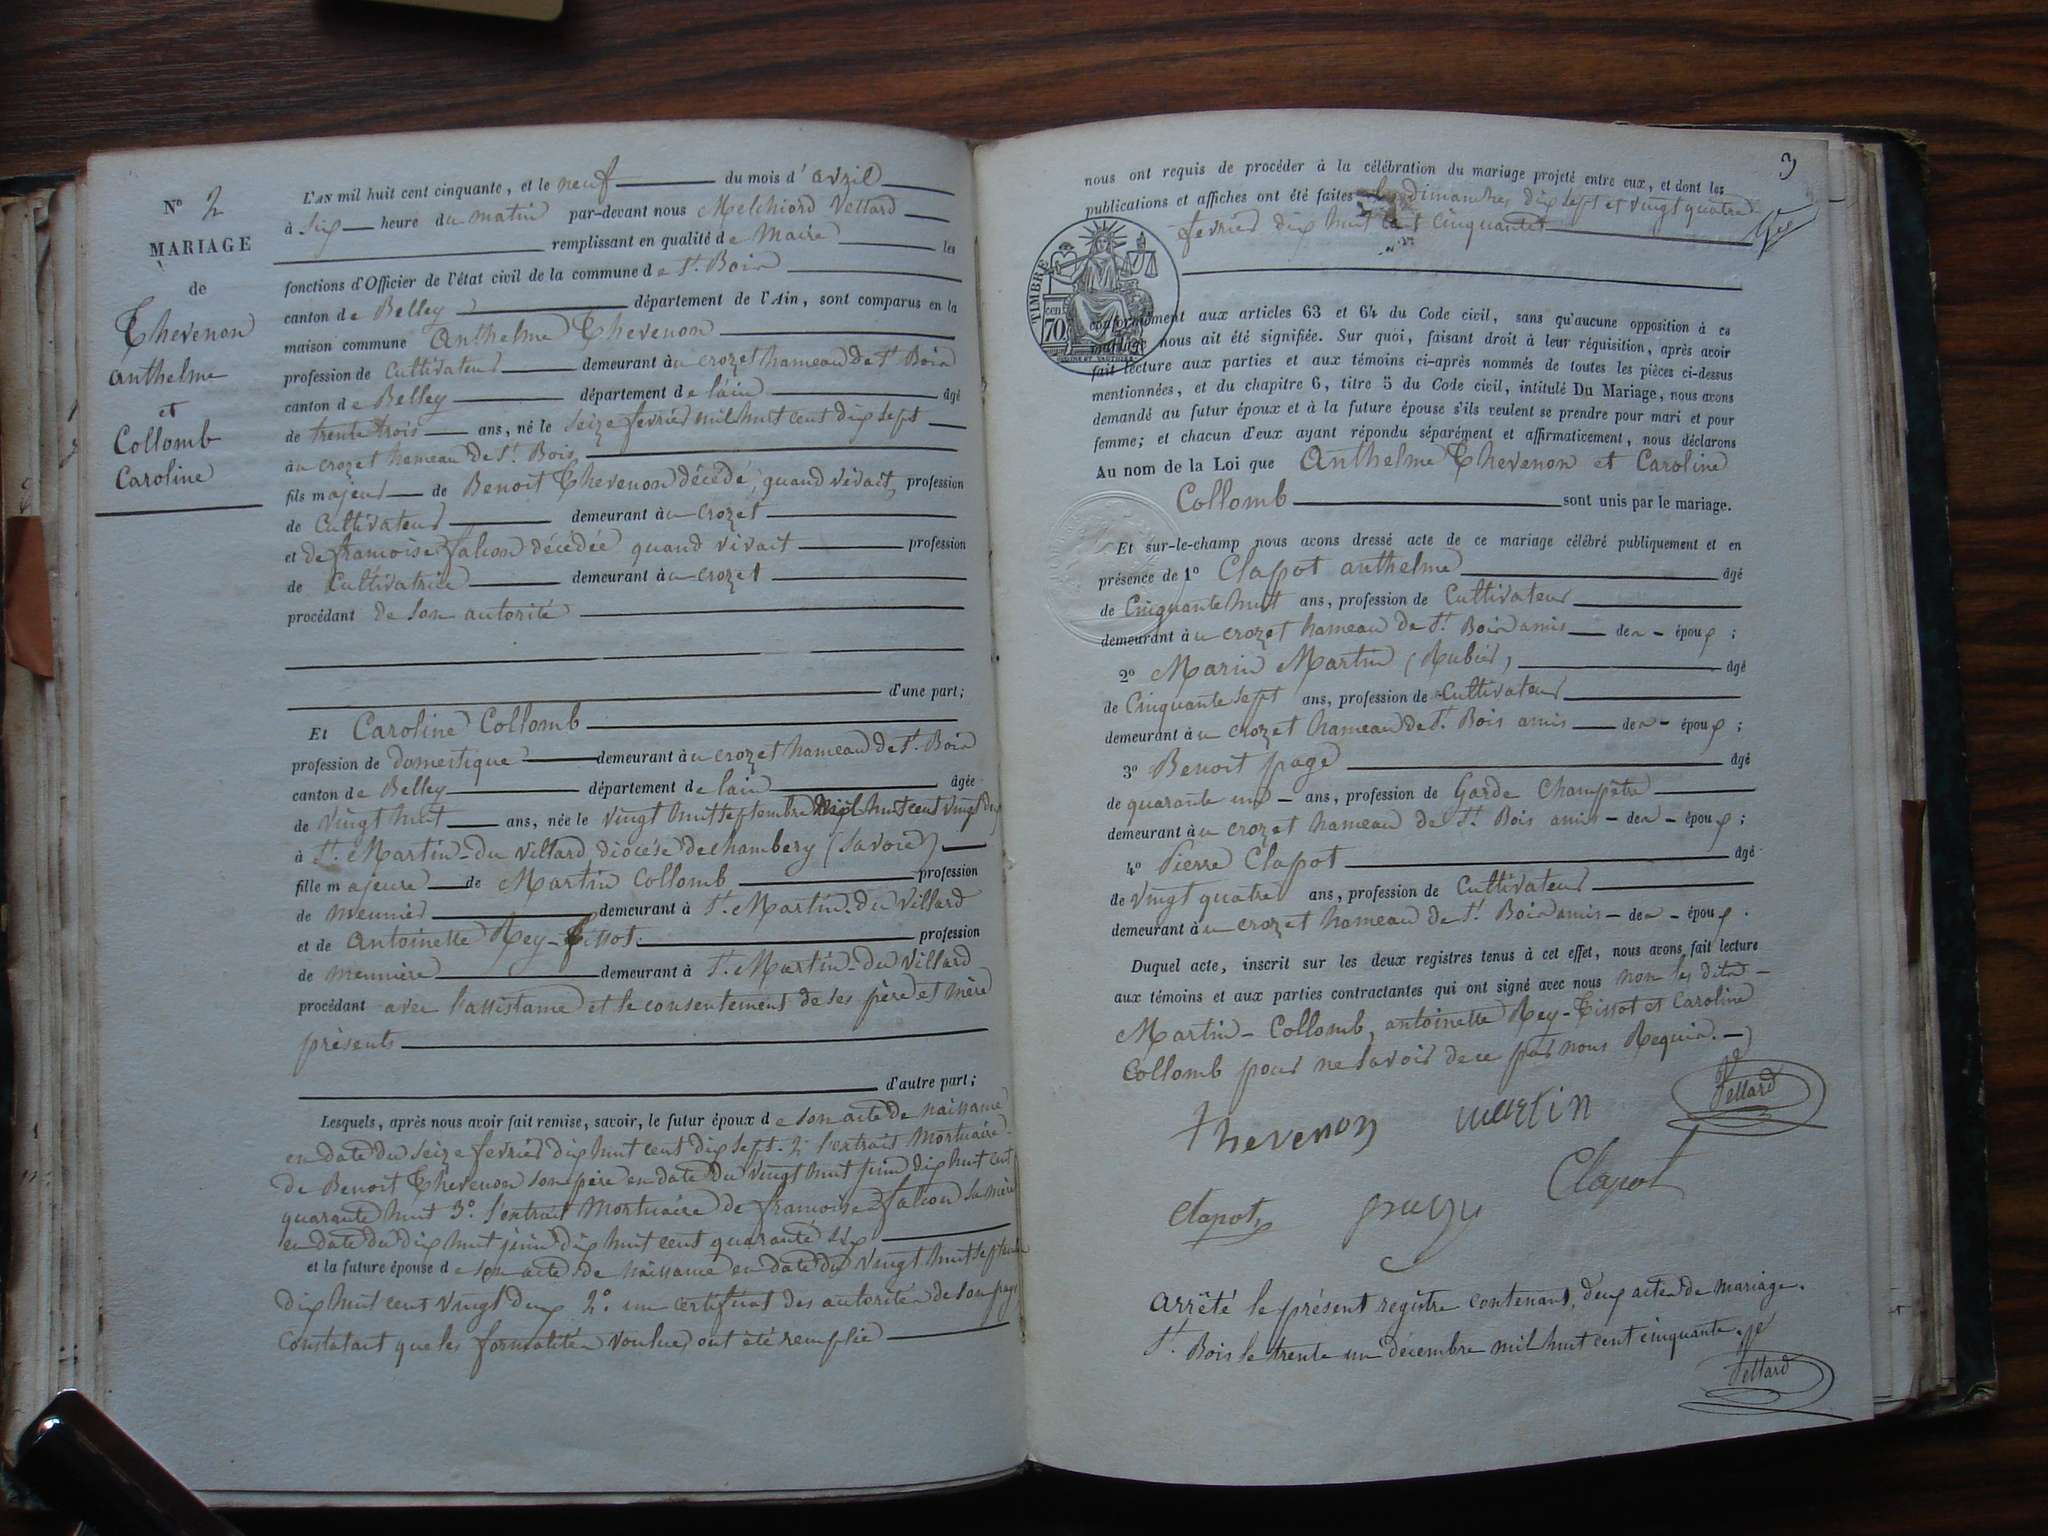 N° 2
MARIAGE
de
Thevenon
anthelme
et
Collomb
Caroline
L'AN mil huit cent cinquante, et le neuf du mois d'avril
à six heure du matin par-devant nous Melchiord Vettard
remplissant en qualité de Maire les
fonctions d'Officier de l'état civil de la commune de St. Bois
canton de Belley département de l'Ain, sont comparus en la
maison commune Anthelme Thevenon
profession de Cultivateur demeurant au crozet hameau de St. Bois
canton de Belley département de lain âgé
de trente trois ans, né le seize fevrier mil huit cent dix sept
au crozet hameau de St. Bois
fils majeur de Benoit Thevenon décédé, quand vivait, profession
de Cultivateur demeurant au crozet
et de francoise falcon décédée quand vivait profession
de Cultivatrice demeurant au crozet
procédant de son autorité
d'une part;
Et Caroline Collomb
profession de domestique demeurant au crozet hameau de St. Bois
canton de Belley département de lain âgée
de vingt huit ans, née le vingt huit septembre mil huit cent vingt deux
à St. Martin-du villard diocése de chambery (savoie)
fille majeure de Martin Collomb profession
de meunier demeurant à St. Martin-du villard
et de antoinette Rey-tissot profession
de meunière demeurant à St. Martin-du villard
procédant avec l'assistance et le consentement de ses père et mère
présents
d'autre part;
Lesquels, après nous avoir fait remise, savoir, le futur époux de son acte de naissance
en date du seize fevrier dix huit cent dix sept. 2° l'extrait mortuaire
de Benoit Thevenon son père en date du vingt huit juin dix huit cent
quarante huit 3° l'extrait mortuaire de francoise falcon sa mère
en date du dix huit juin dix huit cent quarante six
et la future épouse de son acte de naissance en date du vingt huit septembre
dix huit cent vingt deux 2° un certificat des autorités de son pays
constatant que les formalités voulues ont été remplie
3
nous ont requis de procéder à la célébration du mariage projeté entre eux, et dont les
publications et affiches ont été faites les dimanches dix sept et vingt quatre
fevrier dix huit cent cinquante
TIMBRE
70 cent
conformément aux articles 63 et 64 du Code civil, sans qu'aucune opposition à ce
mariage nous ait été signifiée. Sur quoi, faisant droit à leur réquisition, après avoir
fait lecture aux parties et aux témoins ci-après nommés de toutes les pièces ci-dessus
mentionnées, et du chapitre 6, titre 5 du Code civil, intitulé Du Mariage, nous avons
demandé au futur époux et à la future épouse s'ils veulent se prendre pour mari et pour
femme; et chacun d'eux ayant répondu séparément et affirmativement, nous déclarons
Au nom de la Loi que Anthelme Thevenon et Caroline
Collomb sont unis par le mariage.
Et sur-le-champ nous avons dressé acte de ce mariage célébré publiquement et en
présence de 1° Clapot anthelme âgé
de Cinquante huit ans, profession de Cultivateur
demeurant au crozet hameau de St. Bois amis des époux;
2° Marin Martin (Rubié) âgé
de Cinquante sept ans, profession de Cultivateur
demeurant au crozet hameau de St. Bois amis des époux;
3° Benoit page âgé
de quarante un ans, profession de Garde Champêtre
demeurant au crozet hameau de St. Bois amis des époux;
4° Pierre Clapot âgé
de vingt quatre ans, profession de Cultivateur
demeurant au crozet hameau de St. Bois amis des époux.
Duquel acte, inscrit sur les deux registres tenus à cet effet, nous avons fait lecture
aux témoins et aux parties contractantes qui ont signé avec nous non les dits
Martin-Collomb, antoinette Rey-Tissot et Caroline
Collomb pour ne savoir de ce par nous Requis.
thevenon martin Vettard
Clapot page Clapot
arrêté le présent registre contenant, deux actes de mariage.
St. Bois le trente un décembre mil huit cent cinquante
Vettard